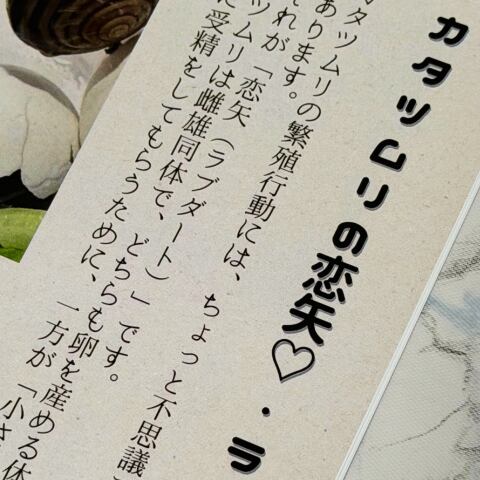 カタツムリの恋矢♡・ラ
タツムリの繁殖行動には、ちょっと不思議
あります。
それが「恋矢（ラブダート）」です。
ツムリは雌雄同体で、どちらも卵を産める体
に受精をしてもらうために、一方が「小さ